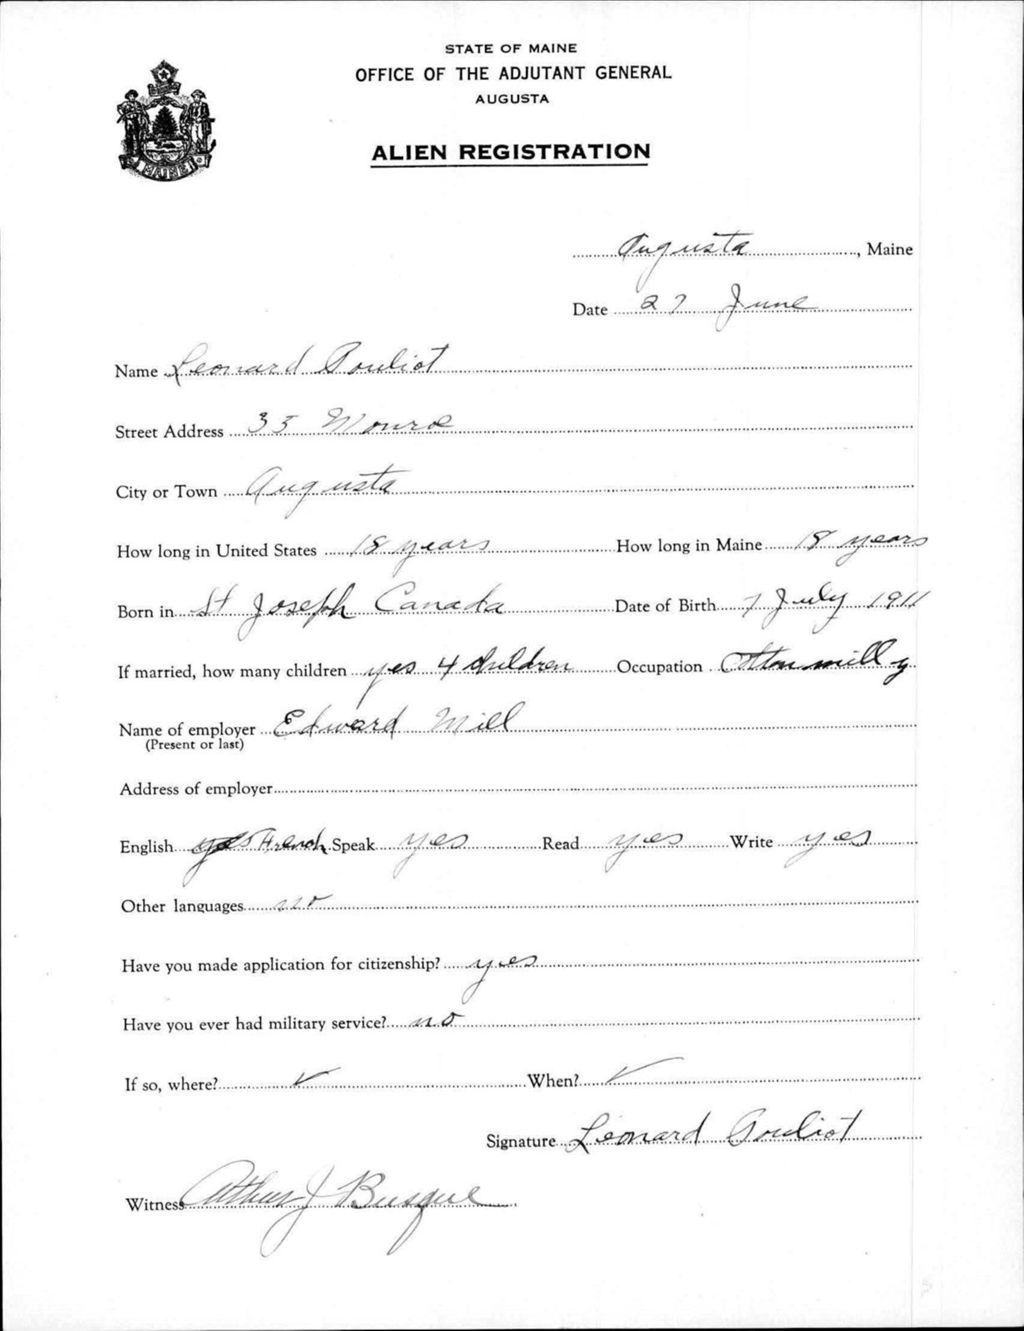 STATE OF MAINE
OFFICE OF THE ADJUTANT GENERAL
AUGUSTA
ALIEN REGISTRATION
MAINE
Augusta, Maine
Date 27 June
Name Leonard Pouliot
Street Address 33 Monroe
City or Town Augusta
How long in United States 18 years How long in Maine 18 years
Born in St Joseph Canada Date of Birth 7 July 1911
If married, how many children yes 4 children Occupation mill
Name of employer Edward Mill
(Present or last)
Address of employer
English yes French Speak yes Read yes Write yes
Other languages no
Have you made application for citizenship? yes
Have you ever had military service? no
If so, where? ✓ When? ✓
Signature Leonard Pouliot
Witness Arthur J Busque